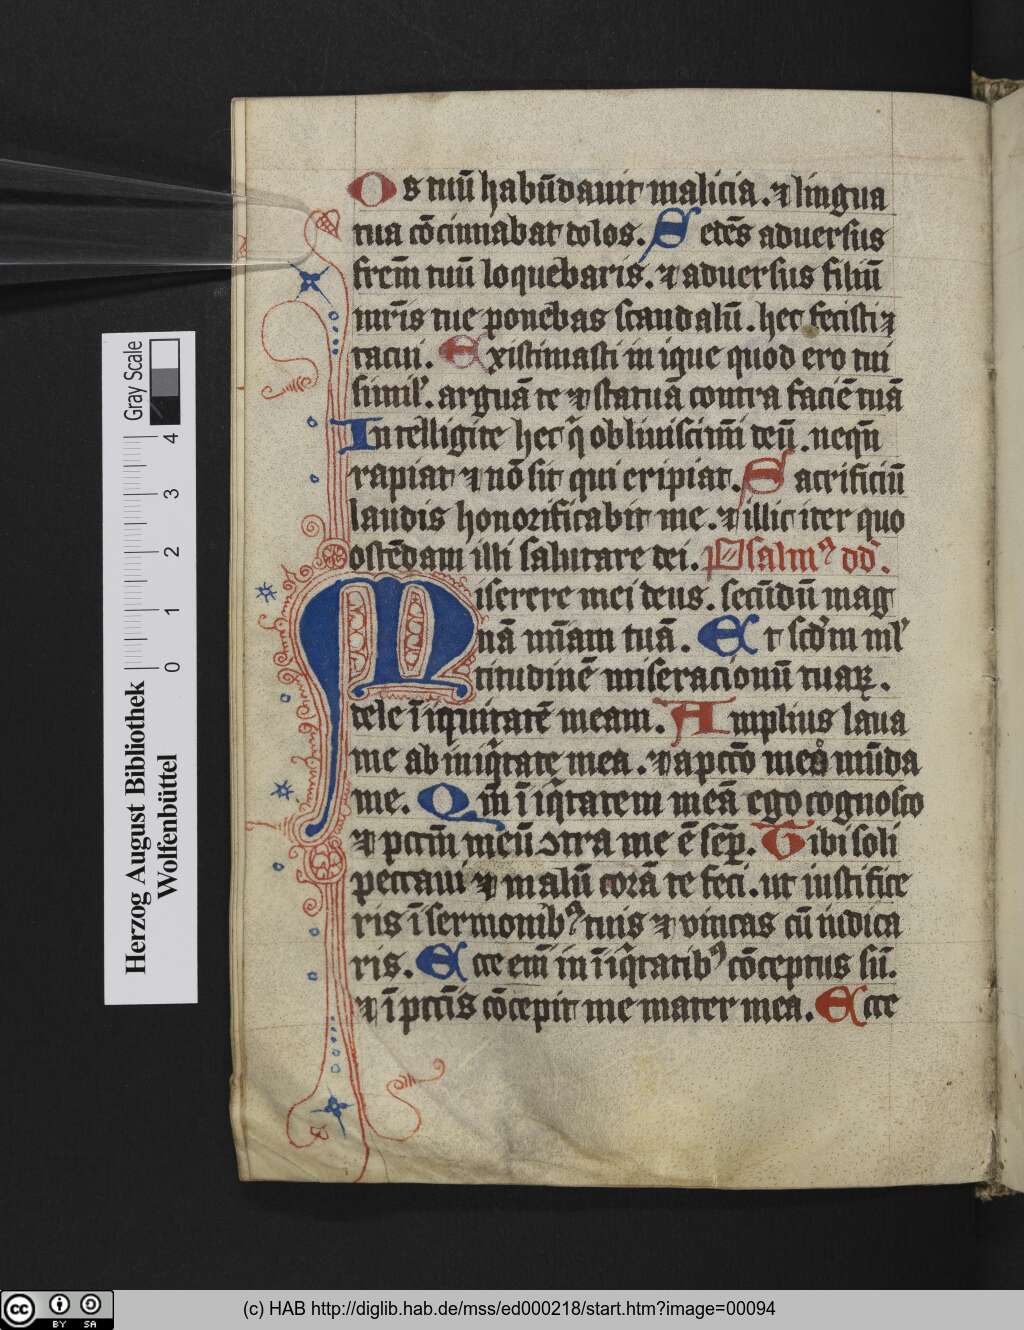 Os tuū habūdauit malicia. ⁊ lingua
tua cōcinnabat dolos. Sedēs aduersus
frēm tuū loquebaris. ⁊ aduersus filiū
mr̄is tue ponebas scandalū. hec fecisti ⁊
tacui. Existimasti inique quod ero tui
simil'. arguā te ⁊ statuā contra faciē tuā
Intelligite hec q̄ obliuiscim̄i deū. neqn̄
rapiat ⁊ nō sit qui eripiat. Sacrificiū
laudis honorificabit me. ⁊ illic iter quo
ostēdam illi salutare dei. Psalmꝰ dd̄.
Miserere mei deus. secūdū mag
nā mīam tuā. Et scd̄m ml'
titudinē miseracionū tuaꝝ.
dele īiquitatē meam. Amplius laua
me ab iniq̄tate mea. ⁊ a pccō meo mūda
me. Qm̄ īiq̄tatem meā ego cognosco
⁊ pctm̄ meū ꝯtra me ē semꝑ. Tibi soli
peccaui ⁊ malū corā te feci. ut iustifice
ris ī sermonibꝰ tuis ⁊ vincas cū iudica
ris. Ecce em̄ in īiq̄tatibꝰ cōceptus sū.
⁊ ī pctīs cōcepit me mater mea. Ecce
Gray Scale
4 3 2 1 0
Herzog August Bibliothek
Wolfenbüttel
cc BY SA
(c) HAB http://diglib.hab.de/mss/ed000218/start.htm?image=00094